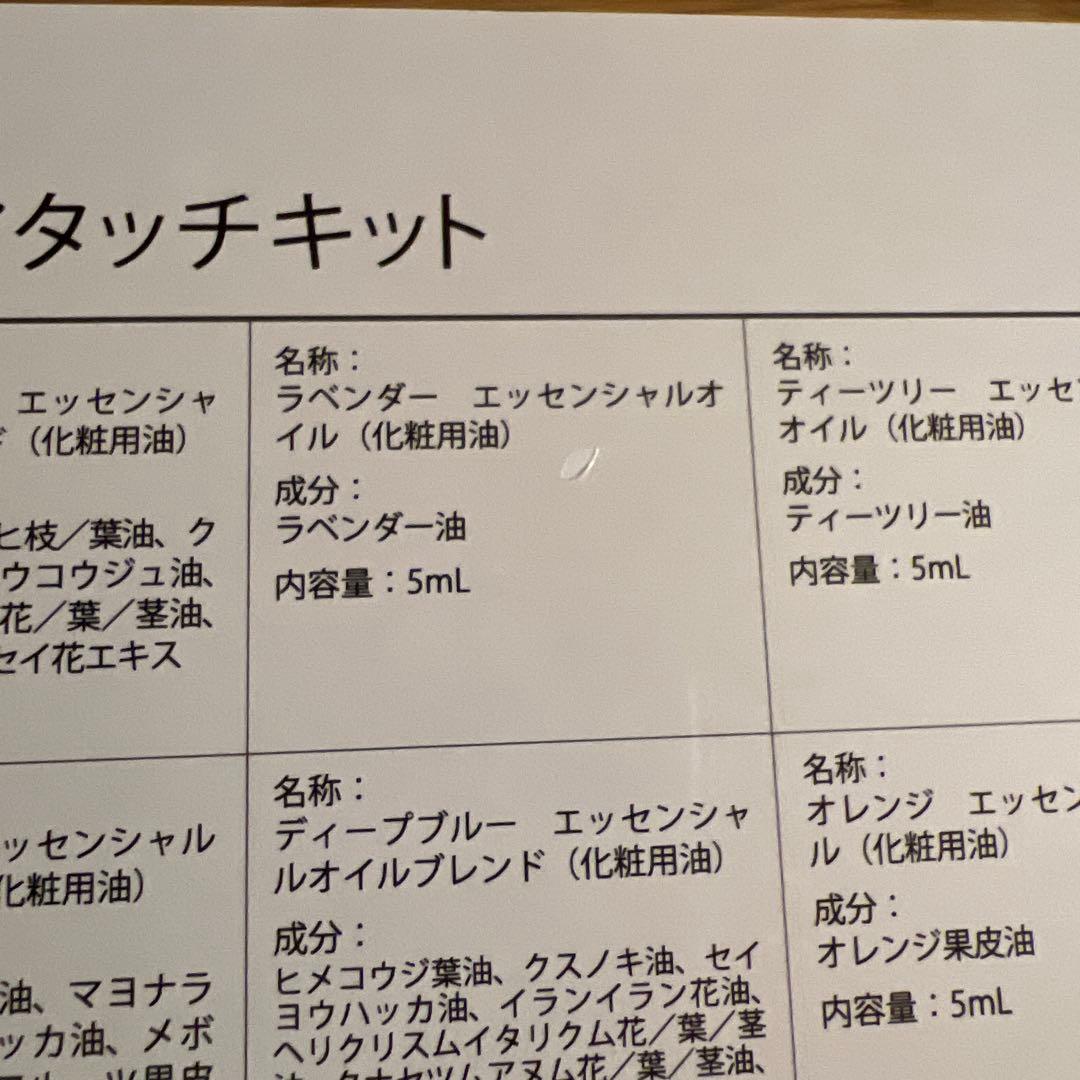 タッチキット
エッセンシャ
（化粧用油）
ヒ枝／葉油、ク
ウコウジュ油、
花／葉／茎油、
セイ花エキス
名称：
ラベンダー　エッセンシャルオ
イル（化粧用油）
成分：
ラベンダー油
内容量：5mL
名称：
ティーツリー　エッセ
オイル（化粧用油）
成分：
ティーツリー油
内容量：5mL
ッセンシャル
化粧用油）
油、マヨナラ
ッカ油、メボ
名称：
ディープブルー　エッセンシャ
ルオイルブレンド（化粧用油）
成分：
ヒメコウジ葉油、クスノキ油、セイ
ヨウハッカ油、イランイラン花油、
ヘリクリスムイタリクム花／葉／茎
油、タナセツムアヌム花／葉／茎油、
名称：
オレンジ　エッセン
ル（化粧用油）
成分：
オレンジ果皮油
内容量：5mL